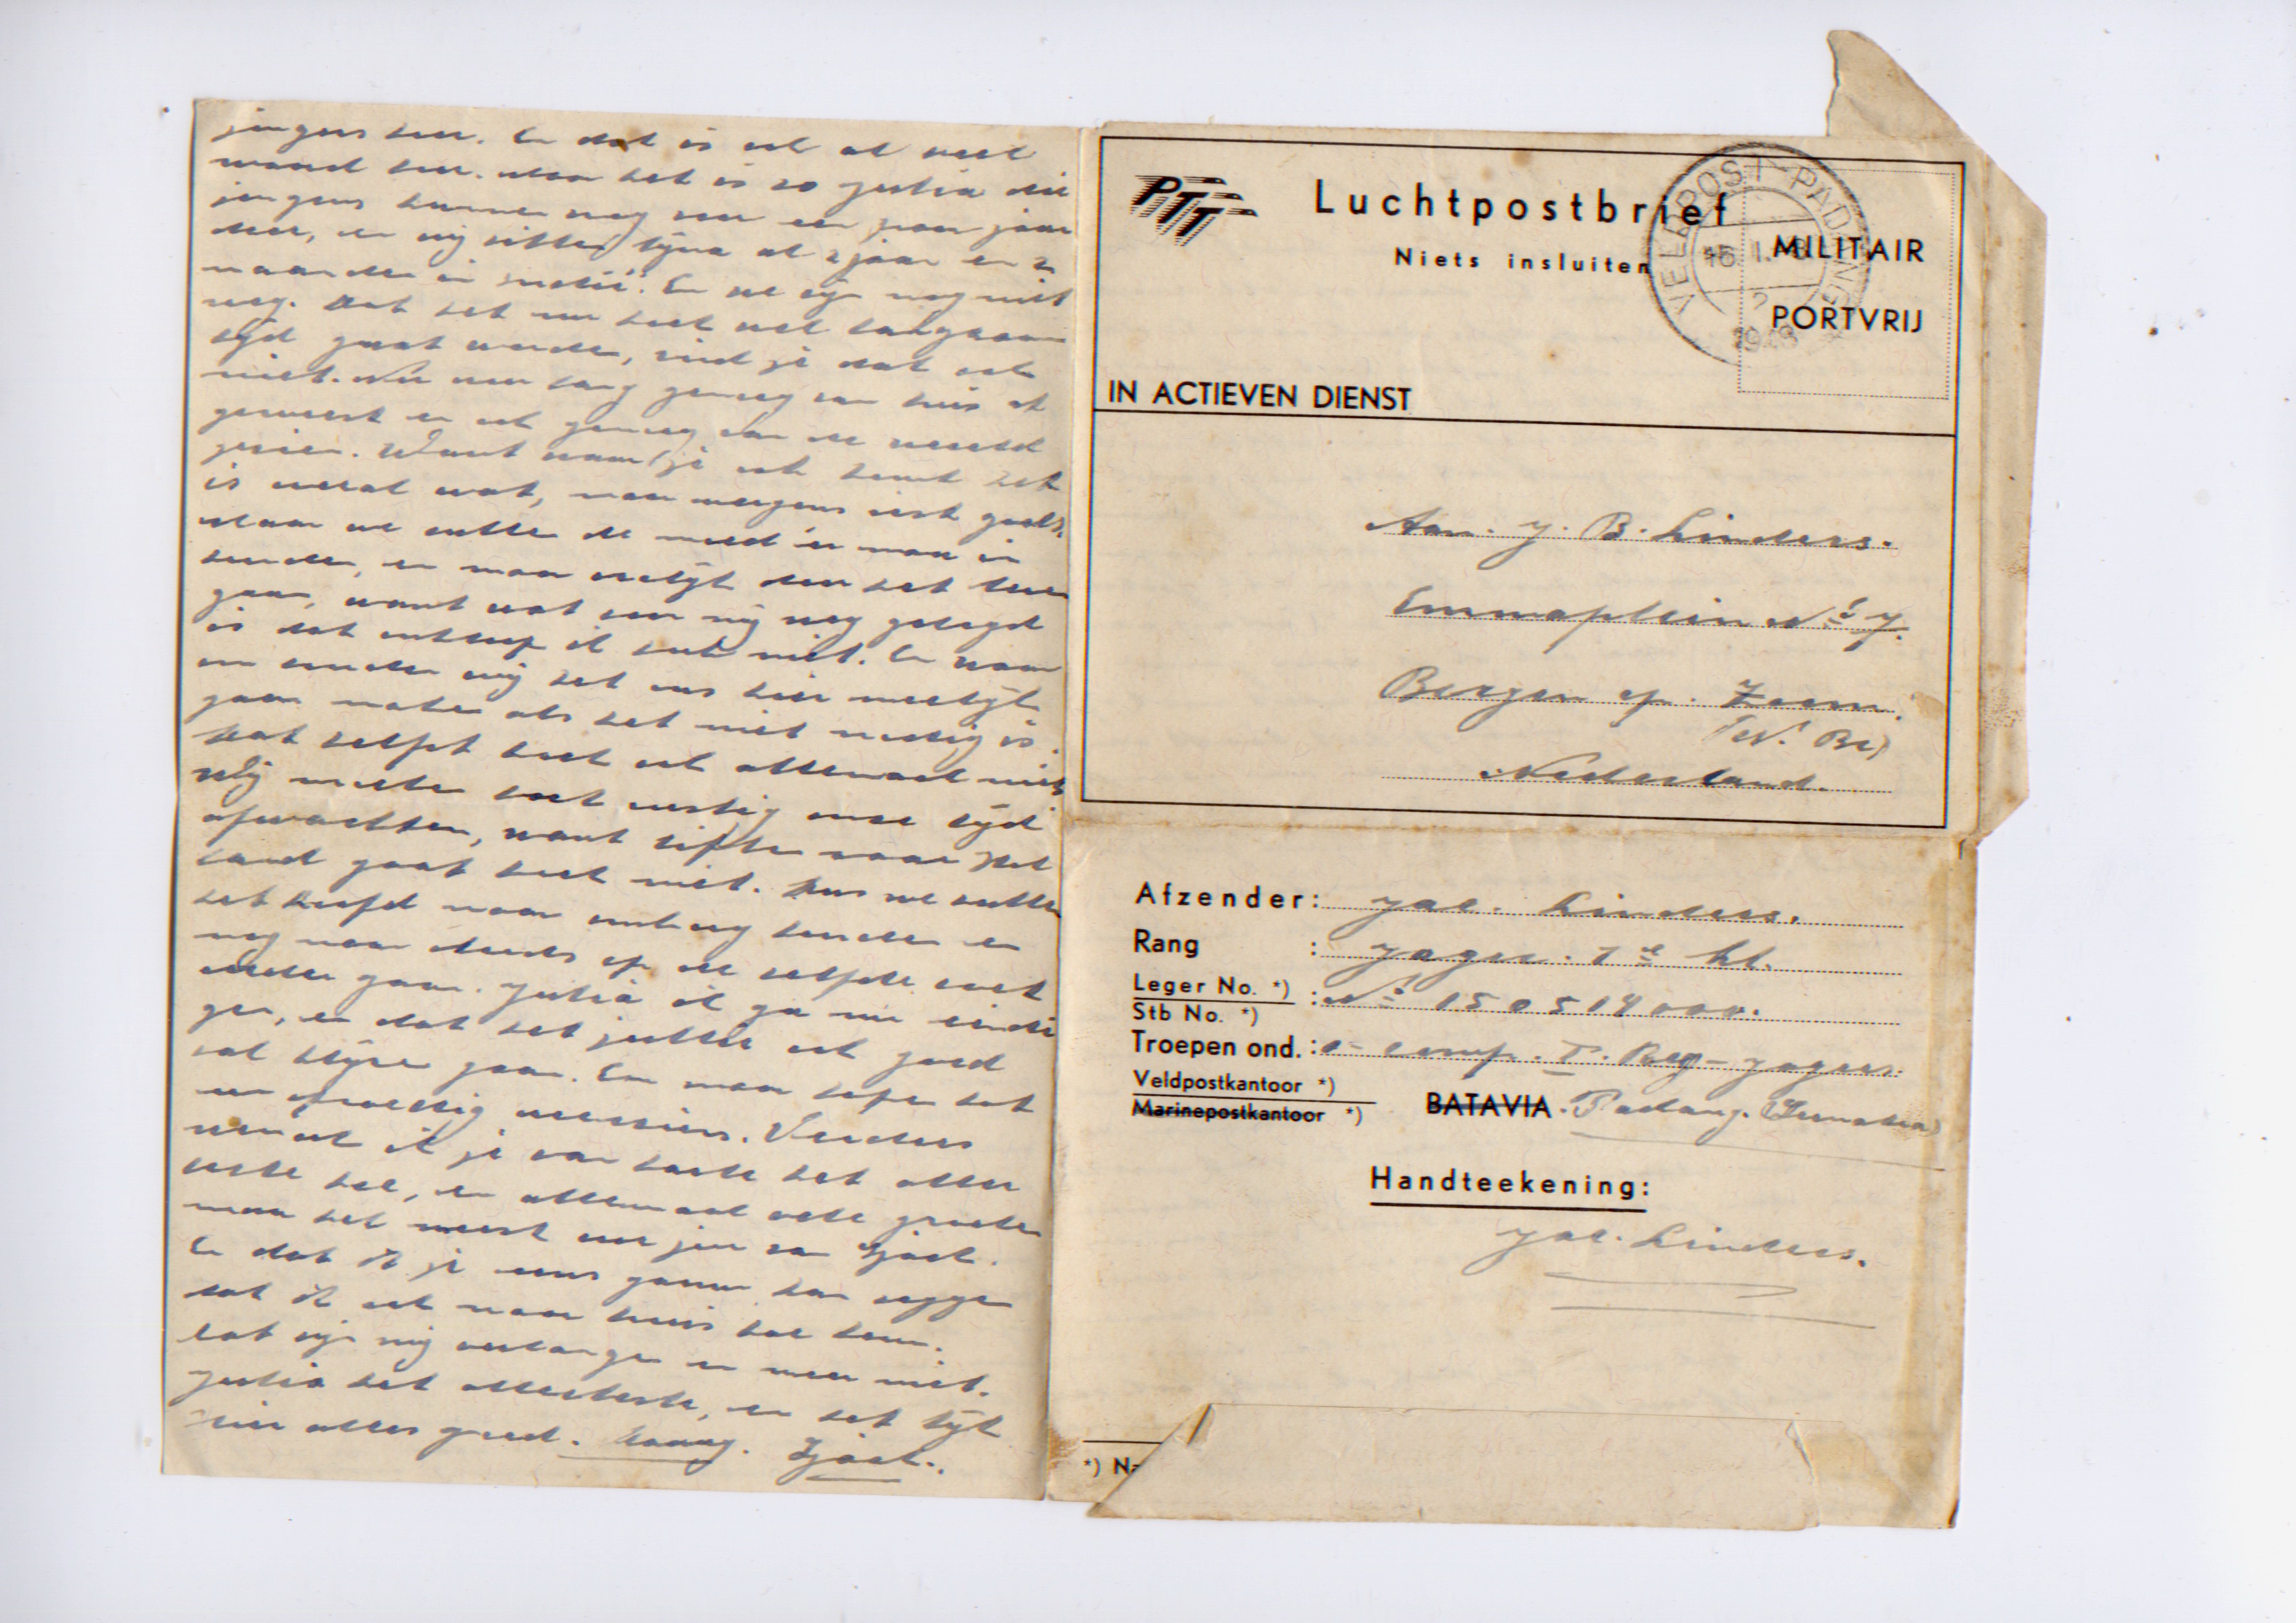 jongens hier. En dat is ook al veel
waard hier. Maar het is zo Justia die
jongens kunnen nog over een paar jaar
door, en wij zitten bijna al 2 jaar en 2
maanden in Indië. En we zijn nog niet
weg. Dat het nu toch wel langzaam
tijd gaat worden, vind je dat ook
niet. Nu nu lang genoeg van huis af
geweest en ook genoeg van de wereld
gezien. Want waar je ook komt het
is overal wat, maar nergens iest goeds.
Maar we zullen de moed er maar in
houden, en maar vrolijk door het leven
gaan, want wat voor mij nog gelegd
is dat ontloop ik toch niet. En waarom
zouden wij het ons hier moeilijk
gaan maken als het niet nodig is.
Dat helpt toch ook allemaal niets
Wij moeten toch rustig onze tijd
afwachten, want liften naar Hol
land gaat toch niet. Dus we zullen
het hoofd maar omhoog houden en
nog maar steeds op de zelfde voet
verder gaan. Justia ik ga nu eindi
gen, en dat het jullie ook goed
zal blijven gaan. En maar hopen tot
een spoedig weerzien. Verders
wens ik je van harte het aller
beste toe, en allemaal vele groeten
maar het meest voor jou van Sjaak.
En dat ik je eens gauw kan zeggen
dat ik ook naar huis toe kom.
Dat zijn wij verlangen en meer niet.
Justia het allerbeste, en het lijk
hier alles goed. Daaag. Sjaak.
PTT
Luchtpostbrief
Niets insluiten
VELDPOST-PADANG
16.1.48
2
1948
MILITAIR
PORTVRIJ
IN ACTIEVEN DIENST
Aan. J. B. Linders.
Emmaplein No 7.
Bergen op. Zoom.
(N. Br)
Nederland.
Afzender: Jac. Linders.
Rang : Jager. 1e kl.
Leger No. *)
Stb No. *) : No 150514000.
Troepen ond. : o- comp. I. Reg- Jagers.
Veldpostkantoor *)
Marinepostkantoor *) BATAVIA. Padang. (Sumatra)
Handteekening:
Jac. Linders.
*) N